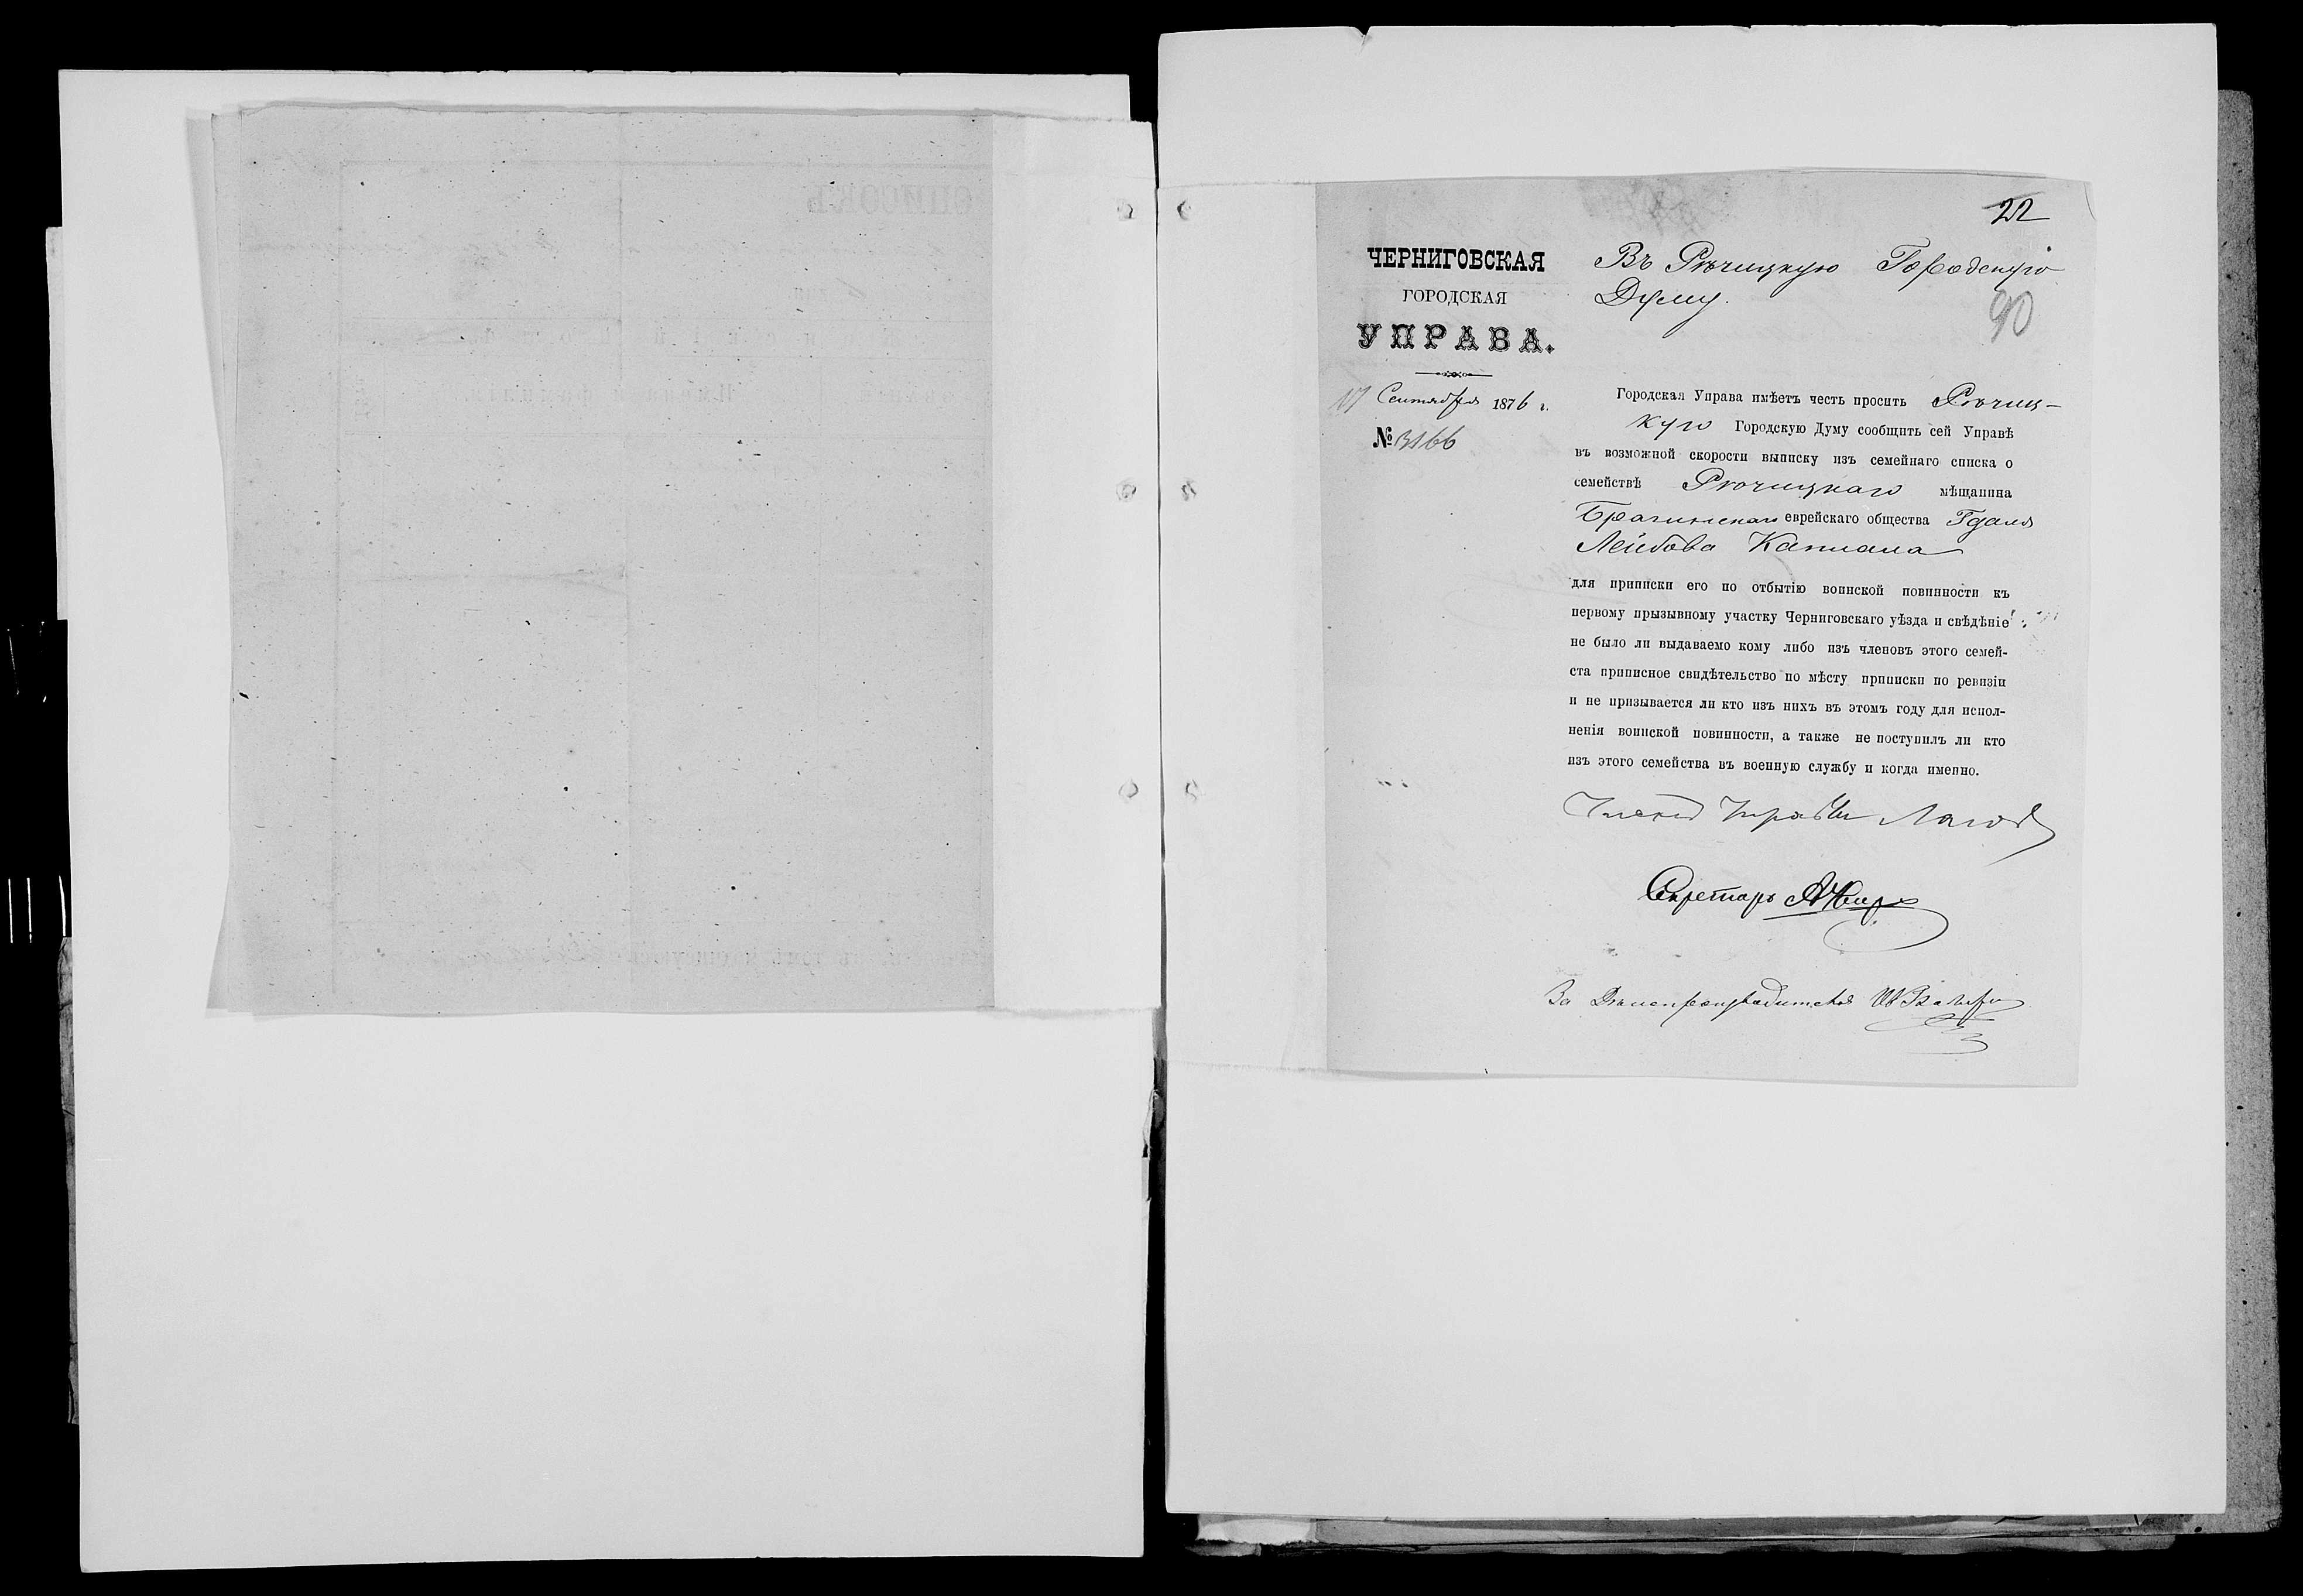 22
ЧЕРНИГОВСКАЯ
ГОРОДСКАЯ
УПРАВА.
17 Сентября 1876 г.
№ 3166
Въ Рѣчицкую Городскую
Думу.
90
Городская Управа имѣетъ честь просить Рѣчиц-
кую Городскую Думу сообщить сей Управѣ
въ возможной скорости выписку изъ семейнаго списка о
семействѣ Рѣчицкаго мѣщанина
Брагинскаго еврейскаго общества Гдаля
Лейбова Каплана
для приписки его по отбытію воинской повинности къ
первому прызывному участку Черниговскаго уѣзда и свѣдѣніе
не было ли выдаваемо кому либо изъ членовъ этого семей-
ста приписное свидѣтельство по мѣсту приписки по ревизіи
и не призывается ли кто изъ нихъ въ этомъ году для испол-
ненія воинской повинности, а также не поступилъ ли кто
изъ этого семейства въ военную службу и когда именно.
Членъ Управы
Секретарь
За Дѣлопроизводителя
СПИСОКЪ